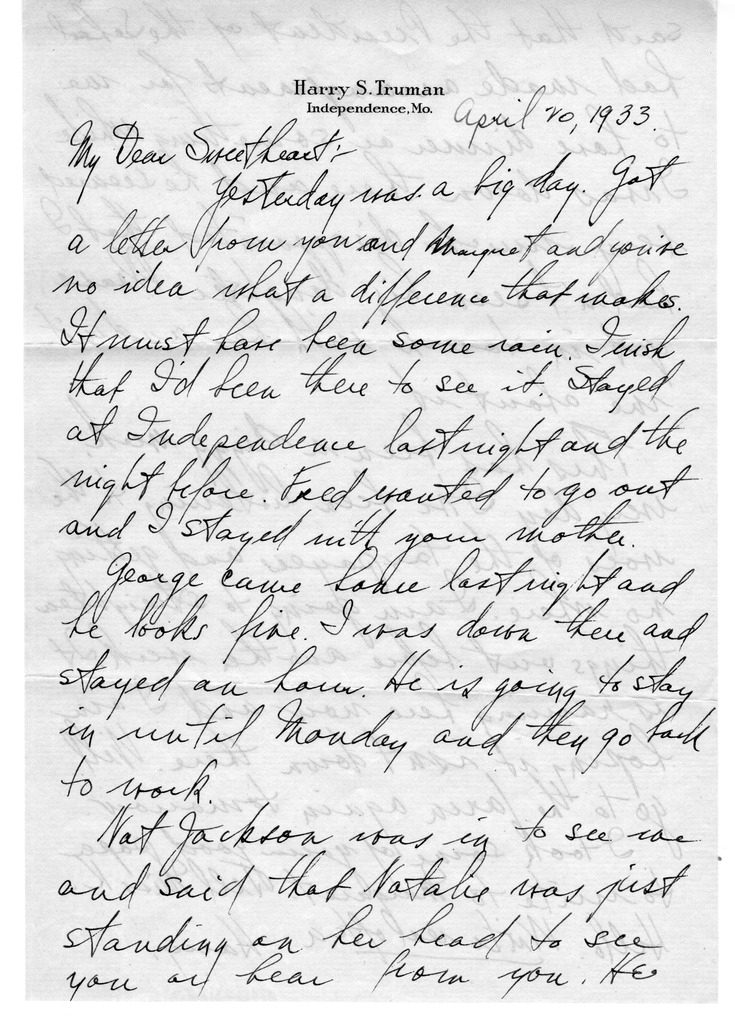 Harry S. Truman
Independence, Mo.
April 20, 1933.
My Dear Sweetheart:-
Yesterday was a big day. Got
a letter from you and Margret and you've
no idea what a difference that makes.
It must have been some rain. I wish
that I'd been there to see it. Stayed
at Independence last night and the
night before. Fred wanted to go out
and I stayed with your mother.
George came home last night and
he looks fine. I was down there and
stayed an hour. He is going to stay
in until Monday and then go back
to work.
Nat Jackson was in to see me
and said that Natalie was just
standing on her head to see
you or hear from you. He